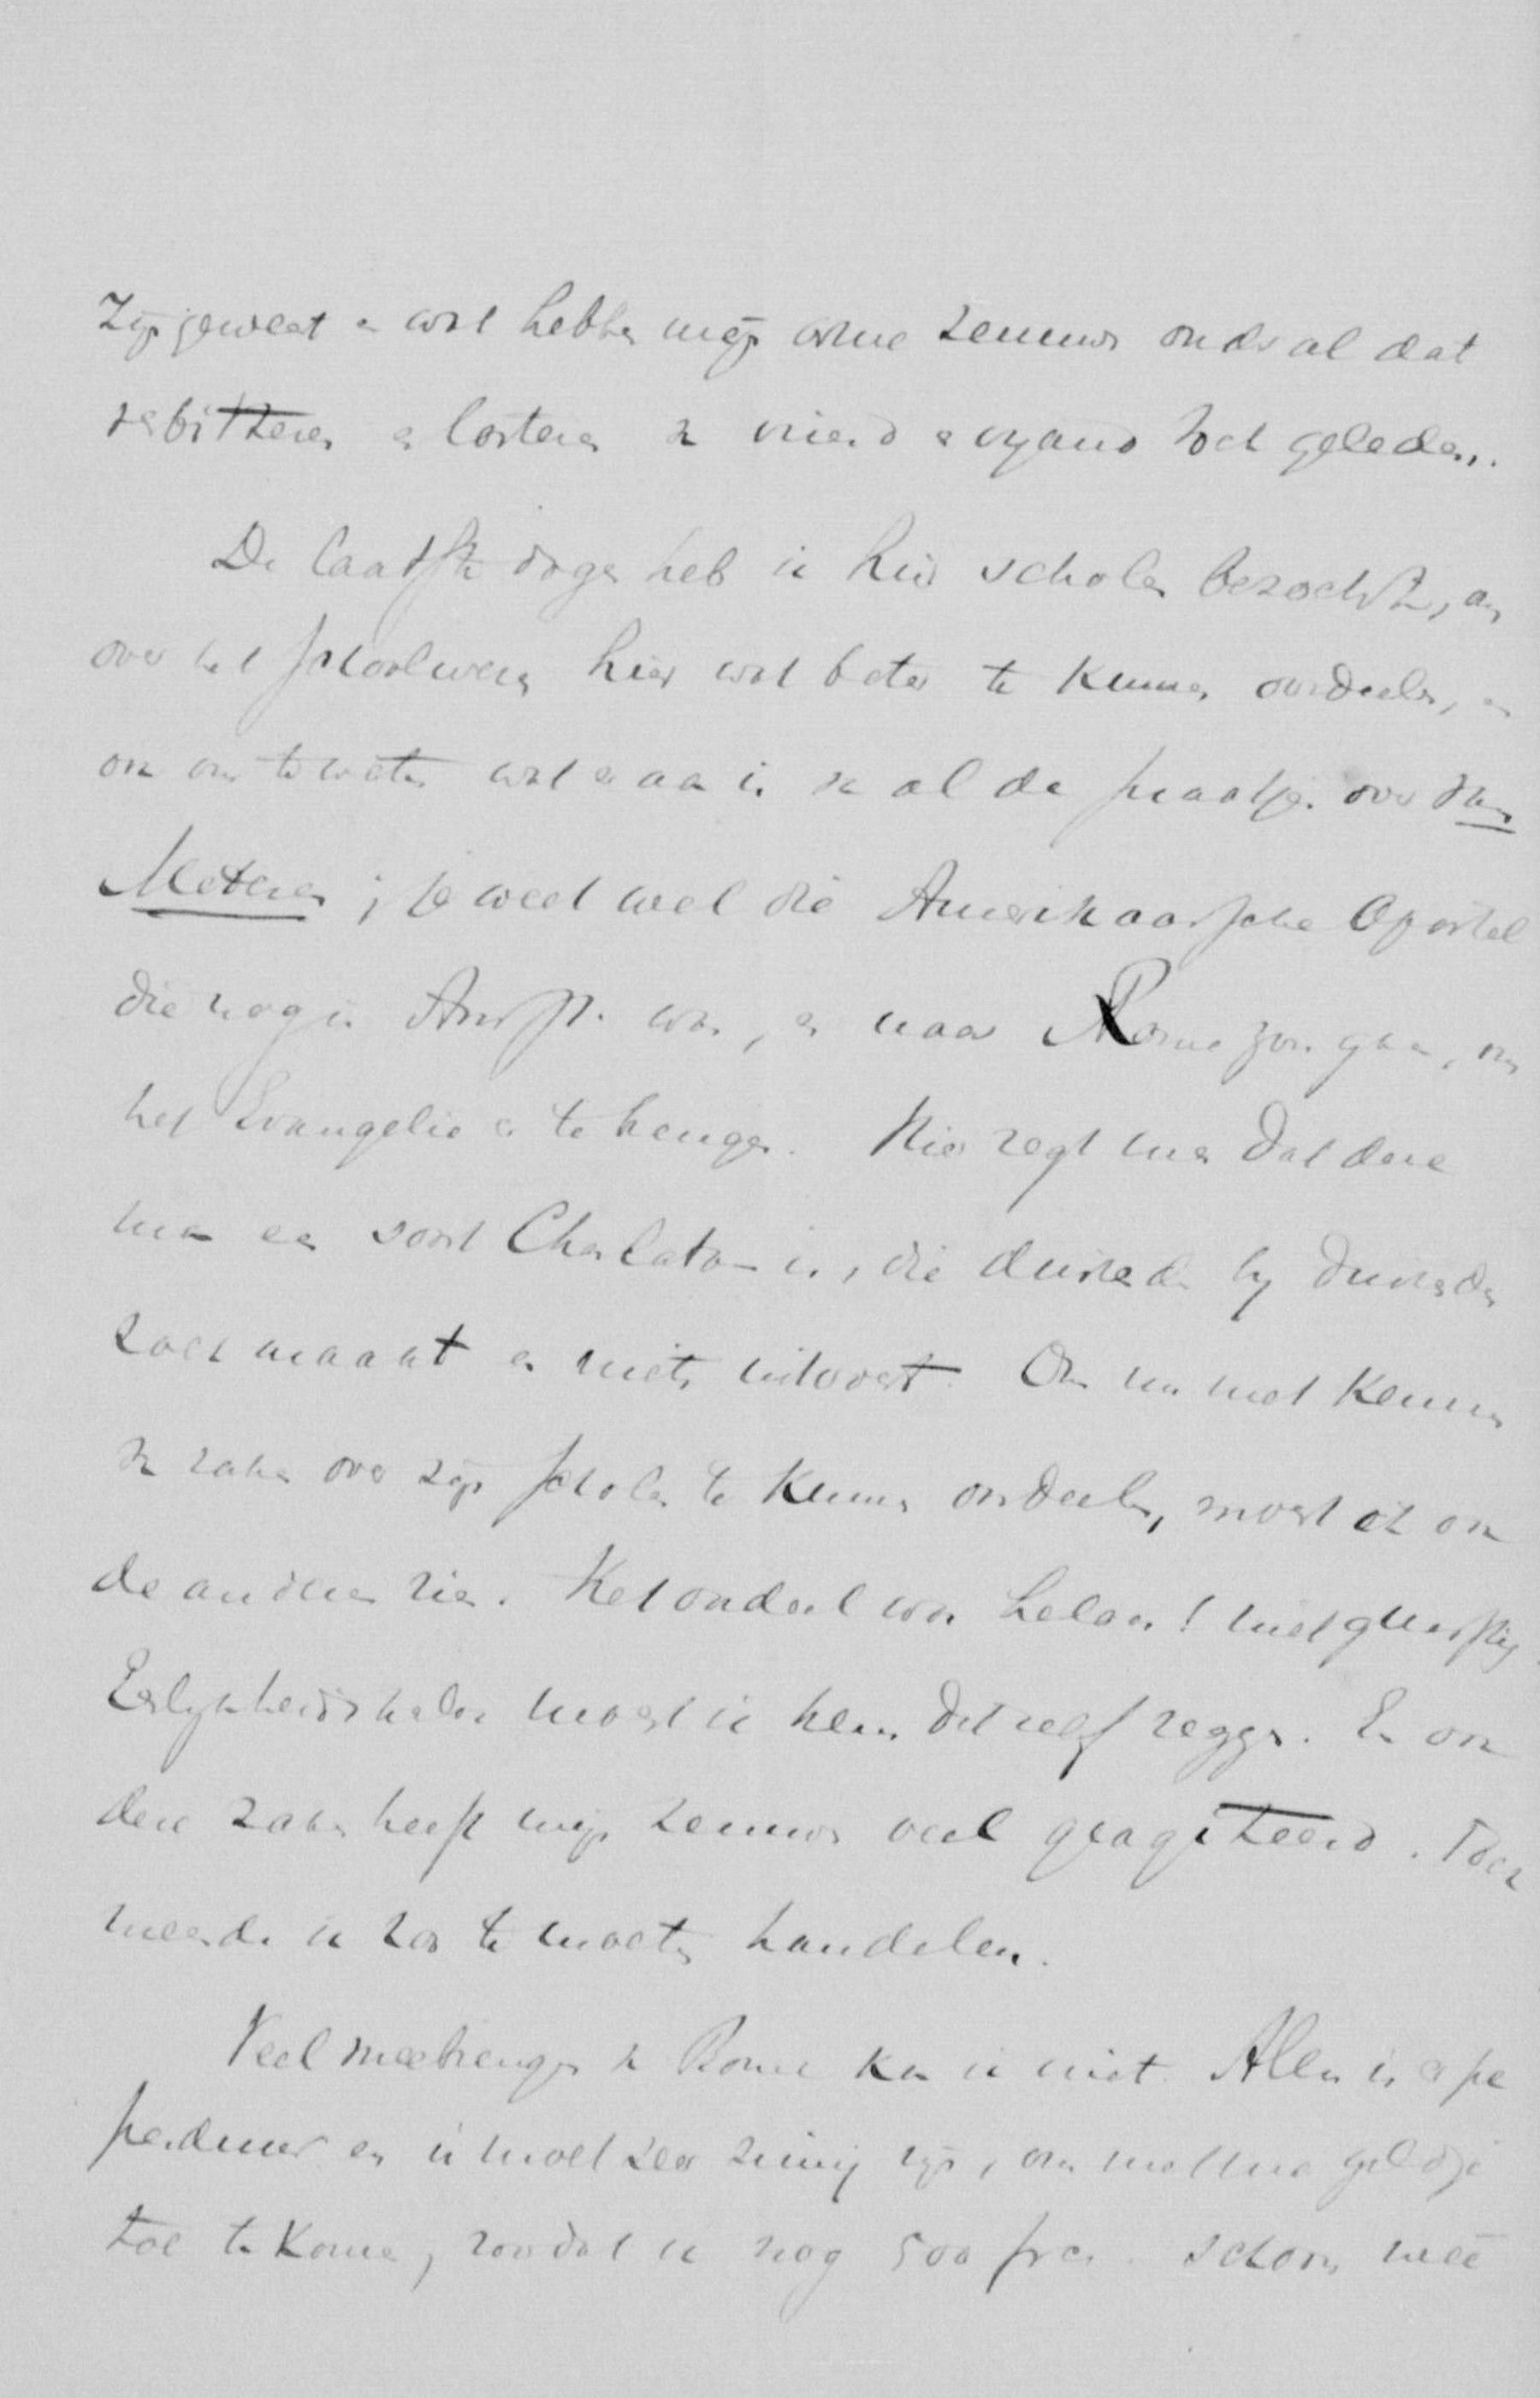 zijn geweest en wat hebben mijn arme zenuwen onder al dat
verbitteren en lasteren van vriend en vyand toch geleden.
De laatste dagen heb ik hier scholen bezocht, om
over het schoolwezen hier wat beter te kunnen oordeelen, en
om ons te weten wat er aan is van al de praatjes over Van
Meteren; je weet wel die Amerikaansche Apostel
die nog in Amst. was, en naar Rome zou gaan, om
het Evangelie er te brengen. Hier zegt men dat deze
man een soort Charlatan is, die duizenden by duizenden
zoek maakt en niets uitvoert. Om nu met kennis
van zaken over zijn scholen te kunnen oordeelen, moest ik ook
de anderen zien. Het oordeel was helaas! niet gunstig.
Eerlykheidshalve moest ik hem dit zelf zeggen. En ook
deze zaken heeft mijn zenuwen veel geagiteerd. Toch
meende ik zoo te moeten handelen.
Veel meebrengen van Rome kan ik niet. Alles is er
peperduur en ik moet zeer zuinig zijn, om met mijn geldje
toe te komen, zoodat ik nog 500 frcs. schoon meê